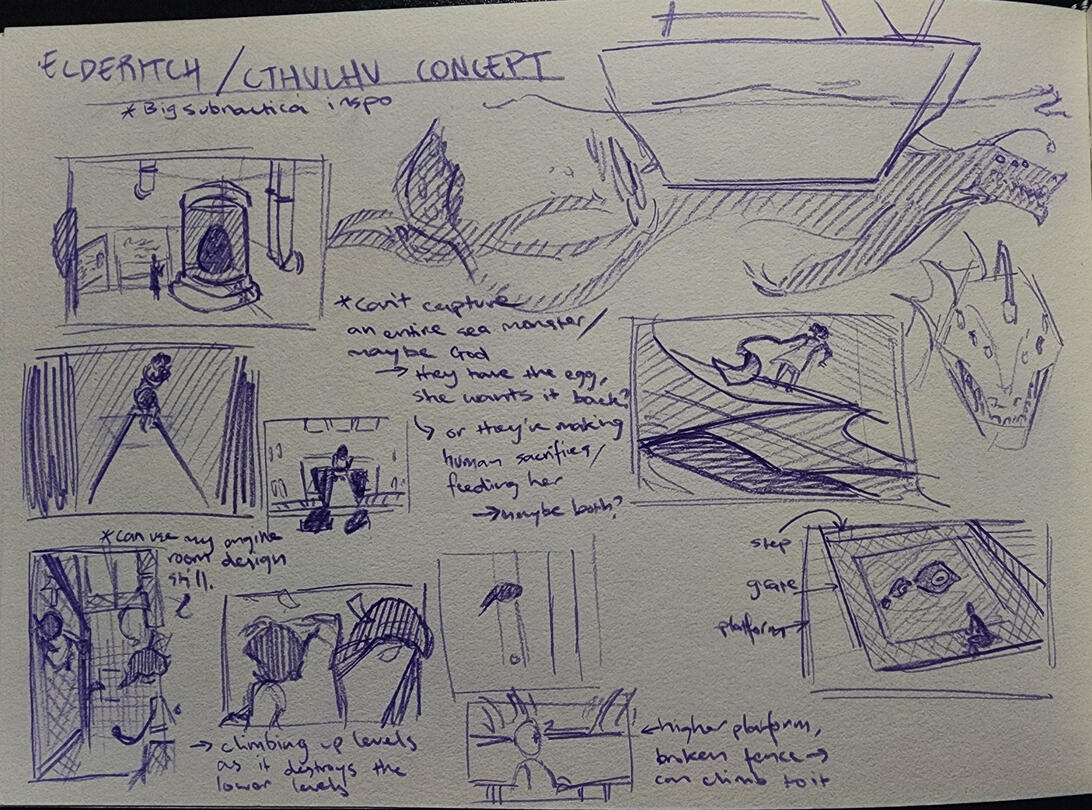 ELDERITCH / CTHULHU CONCEPT
*Big subnautica inspo
*can't capture
an entire sea monster/
maybe God
→ they have the egg,
she wants it back?
↳ or they're making
human sacrifices/
feeding her
→ maybe both?
*can use my engine
room design
still.
step
grate
platform
→ climbing up levels
as it destroys the
lower levels
← higher platform,
broken fence →
can climb to it